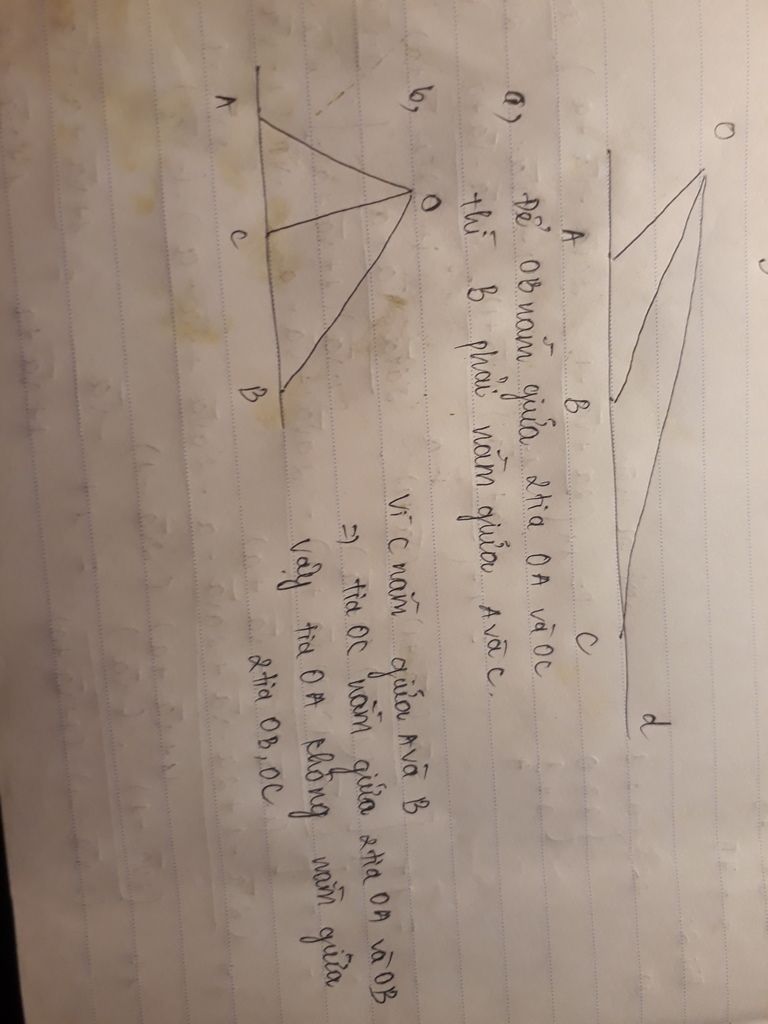 O
A B C d
a, Để OB nằm giữa 2 tia OA và OC
thì B phải nằm giữa A và C.
b,
O
A C B
Vì C nằm giữa A và B
=> tia OC nằm giữa 2 tia OA và OB
Vậy tia OA không nằm giữa
2 tia OB, OC